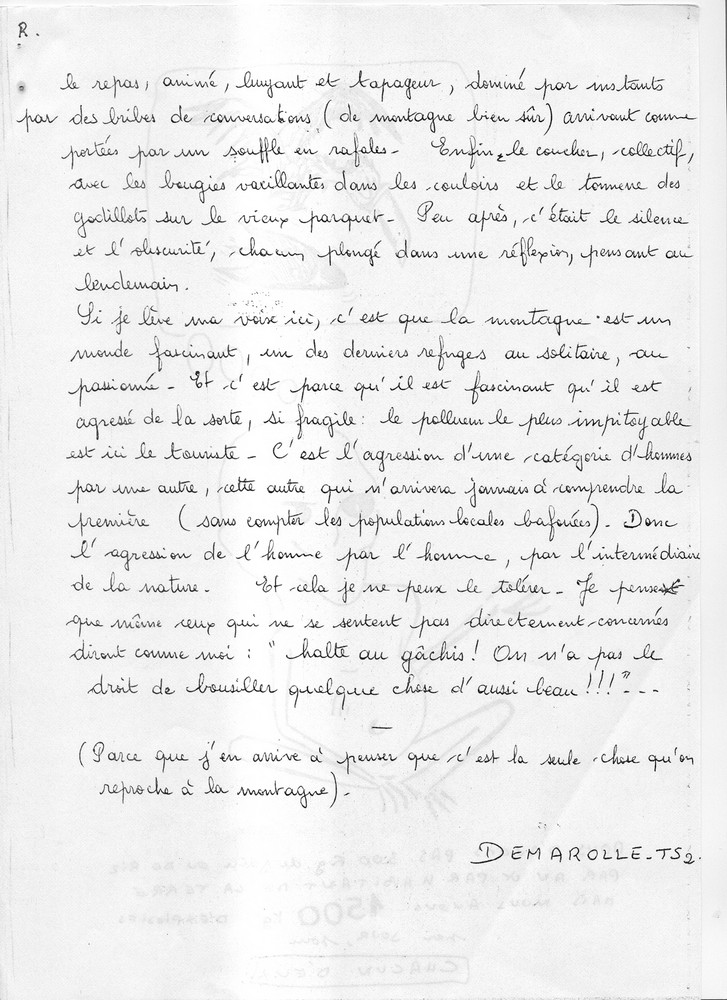 R.
le repas, animé, bruyant et tapageur, dominé par instants
par des bribes de conversations (de montagne bien sûr) arrivant comme
portées par un souffle en rafales - Enfin, le coucher, collectif,
avec les bougies vacillantes dans les couloirs et le tonnerre des
godillots sur le vieux parquet - Peu après, c'était le silence
et l'obscurité, chacun plongé dans une réflexion, pensant au
lendemain.
Si je lève ma voix ici, c'est que la montagne est un
monde fascinant, un des derniers refuges au solitaire, au
passionné - Et c'est parce qu'il est fascinant qu'il est
agressé de la sorte, si fragile : le pollueur le plus impitoyable
est ici le touriste - C'est l'agression d'une catégorie d'hommes
par une autre, cette autre qui n'arrivera jamais à comprendre la
première (sans compter les populations locales bafouées) - Donc
l'agression de l'homme par l'homme, par l'intermédiaire
de la nature - Et cela je ne peux le tolérer - Je pense
que même ceux qui ne se sentent pas directement concernés
diront comme moi : "halte au gâchis ! On n'a pas le
droit de bousiller quelque chose d'aussi beau !!!" ---
—
(Parce que j'en arrive à penser que c'est la seule chose qu'on
reproche à la montagne) -
DEMAROLLE - TS2.